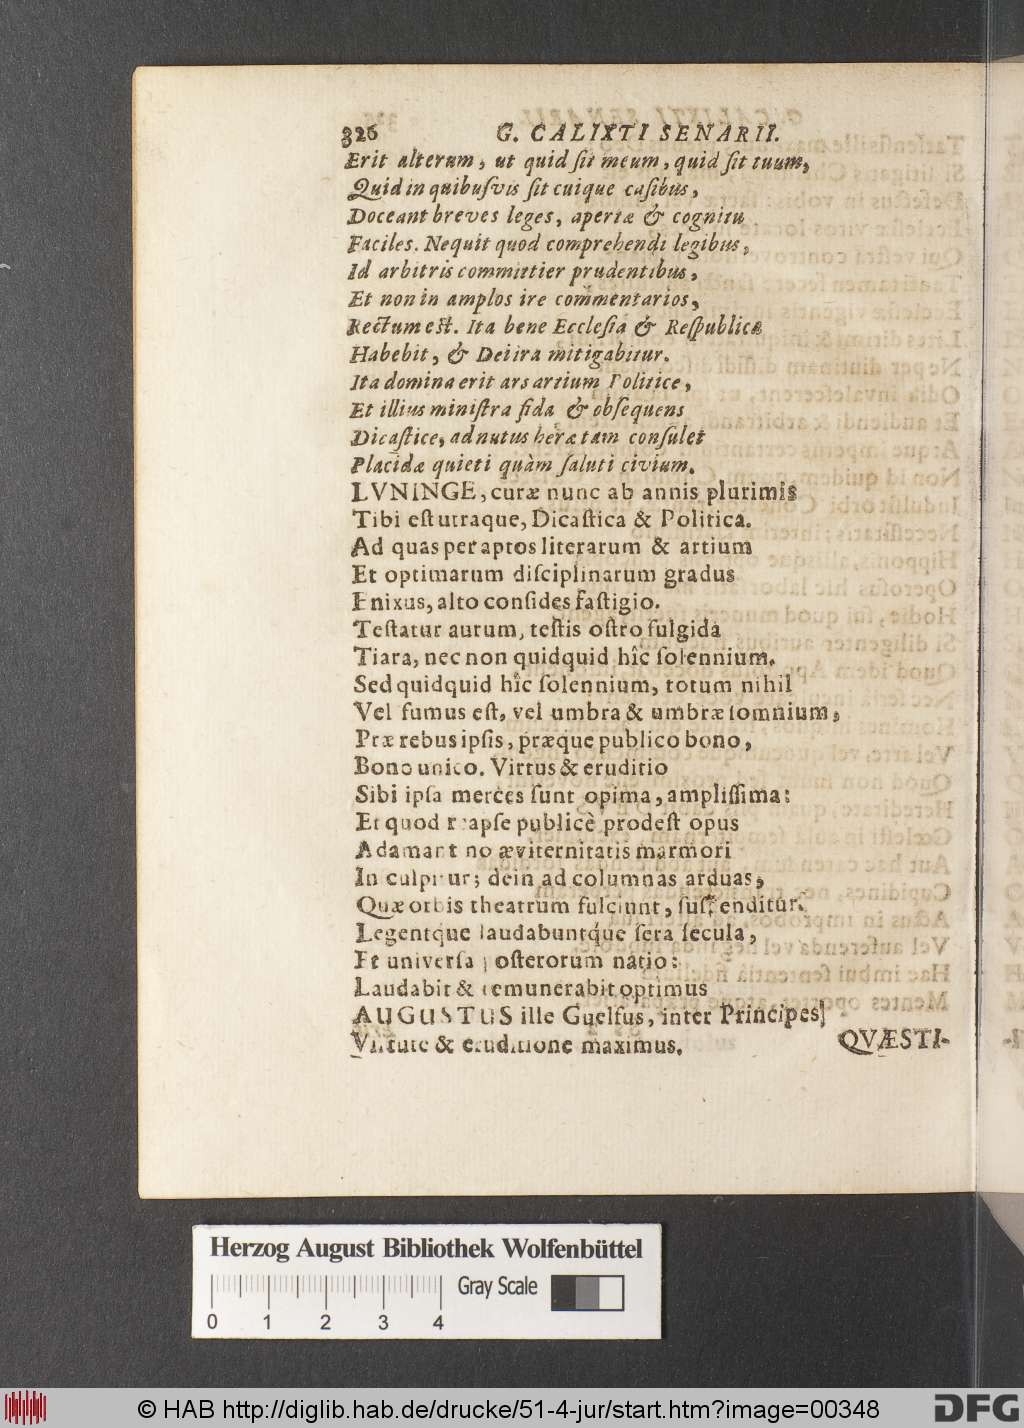 326 G. CALIXTI SENARII.
Erit alterum, ut quid ſit meum, quid ſit tuum,
Quid in quibuſvis ſit cuique caſibus,
Doceant breves leges, apertæ & cognitu
Faciles. Nequit quod comprehendi legibus,
Id arbitris committier prudentibus,
Et non in amplos ire commentarios,
Rectum eſt. Ita bene Eccleſia & Reſpublica
Habebit, & Dei ira mitigabitur.
Ita domina erit ars artium Politice,
Et illius miniſtra fida & obſequens
Dicaſtice, ad nutus heræ tam conſulet
Placidæ quieti quàm ſaluti civium.
LVNINGE, curæ nunc ab annis plurimis
Tibi eſt utraque, Dicaſtica & Politica.
Ad quas per aptos literarum & artium
Et optimarum diſciplinarum gradus
Enixus, alto conſides faſtigio.
Teſtatur aurum, teſtis oſtro fulgida
Tiara, nec non quidquid hîc ſolennium.
Sed quidquid hîc ſolennium, totum nihil
Vel fumus eſt, vel umbra & umbræ ſomnium,
Præ rebus ipſis, præque publico bono,
Bono unico. Virtus & eruditio
Sibi ipſa merces ſunt opima, ampliſſima:
Et quod reapſe publicè prodeſt opus
Adamantino æviternitatis marmori
Inculpitur; dein ad columnas arduas,
Quæ orbis theatrum fulciunt, ſuſpenditur.
Legentque laudabuntque ſera ſecula,
Et univerſa poſterorum natio:
Laudabit & remunerabit optimus
AUGUSTUS ille Guelfus, inter Principes
Virtute & eruditione maximus.
QVÆSTI-
Herzog August Bibliothek Wolfenbüttel
Gray Scale
0 1 2 3 4
© HAB http://diglib.hab.de/drucke/51-4-jur/start.htm?image=00348
DFG